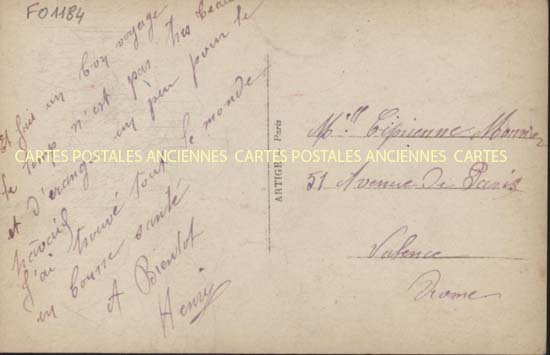 FO1184
Et fais un bon voyage
le temps n'est pas très beau
et d'érange un peu pour le
travail
J'ai trouvé tout le monde
en bonne santé
A Bientot
Henri
ARTIGE Paris
CARTES POSTALES ANCIENNES CARTES POSTALES ANCIENNES CARTES
Melle
51 Avenue de Paris
Valence
Drome